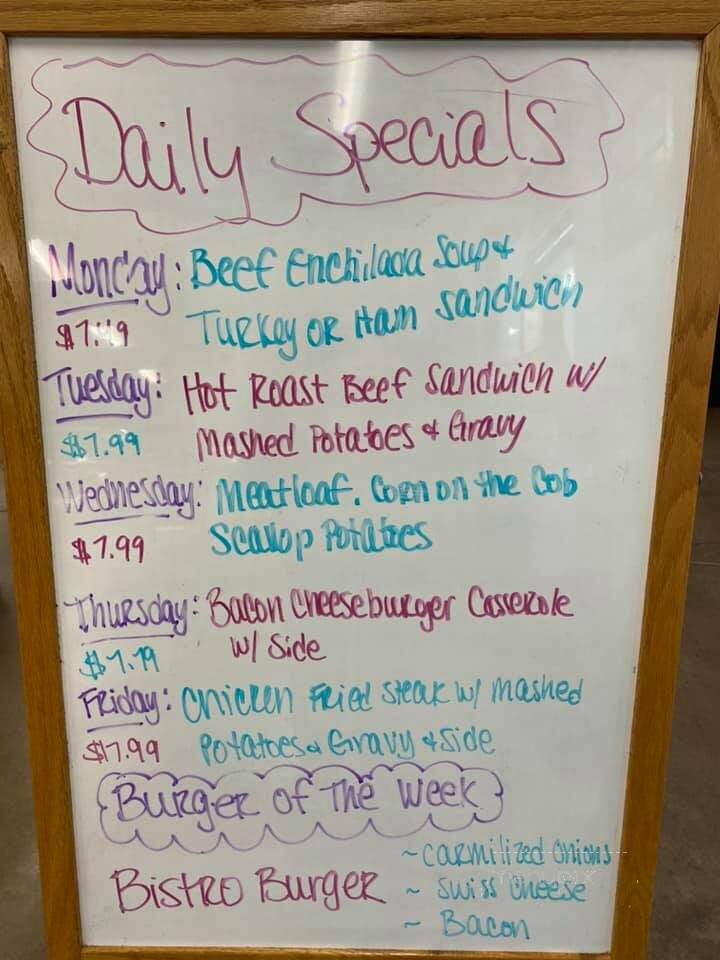 Daily Specials
Monday: Beef Enchilada Soup &
Turkey or Ham Sandwich
Tuesday: Hot Roast Beef Sandwich w/
$7.99 Mashed Potatoes & Gravy
Wednesday: Meatloaf, Corn on the Cob
$7.99 Scallop Potatoes
Thursday: Bacon Cheeseburger Casserole
w/ Side
Friday: Chicken Fried Steak w/ Mashed
$7.99 Potatoes & Gravy & Side
Burger of The Week
Bistro Burger
~ Carmilized Onions
~ Swiss Cheese
~ Bacon